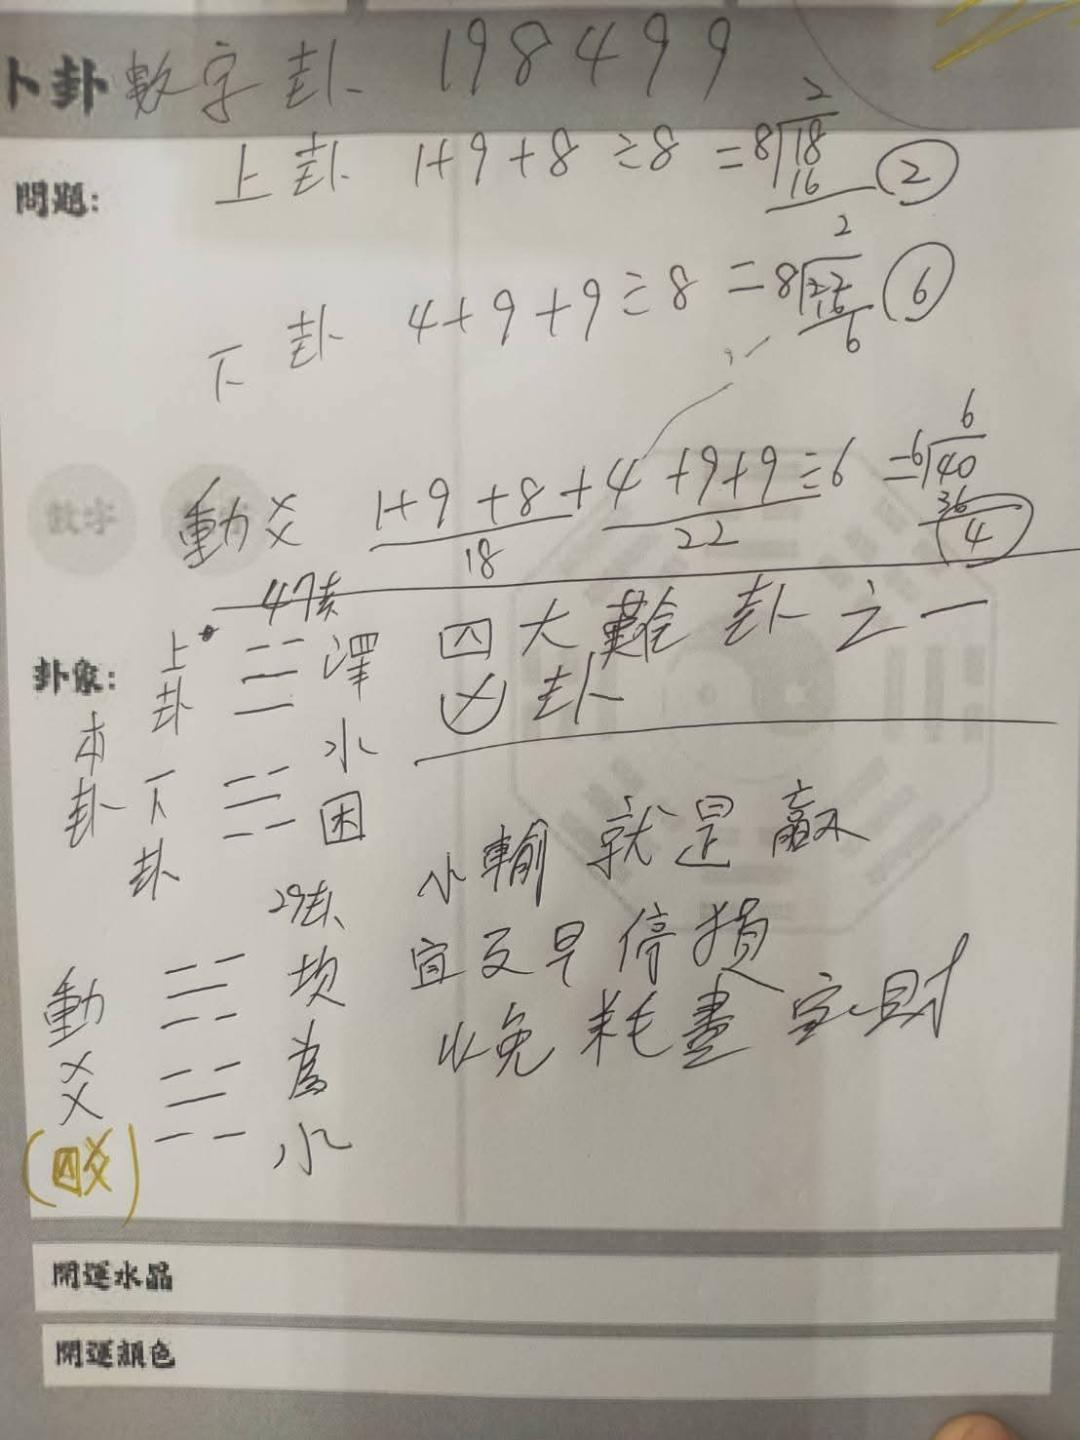 卜卦 數字卦 198499
問題:
上卦 1+9+8÷8 = 8 18 2 16 2 ②
下卦 4+9+9÷8 = 8 22 2 16 6 ⑥
動爻 1+9+8+4+9+9÷6 = 6 40 6 36 4
18 22
數字
47卦
卦象:
本卦 上卦 下卦 澤水困
四大難卦之一
凶卦
29卦
動爻 (四爻) 坎為水
小輸就是贏
宜及早停損
以免耗盡家財
開運水晶
開運顏色